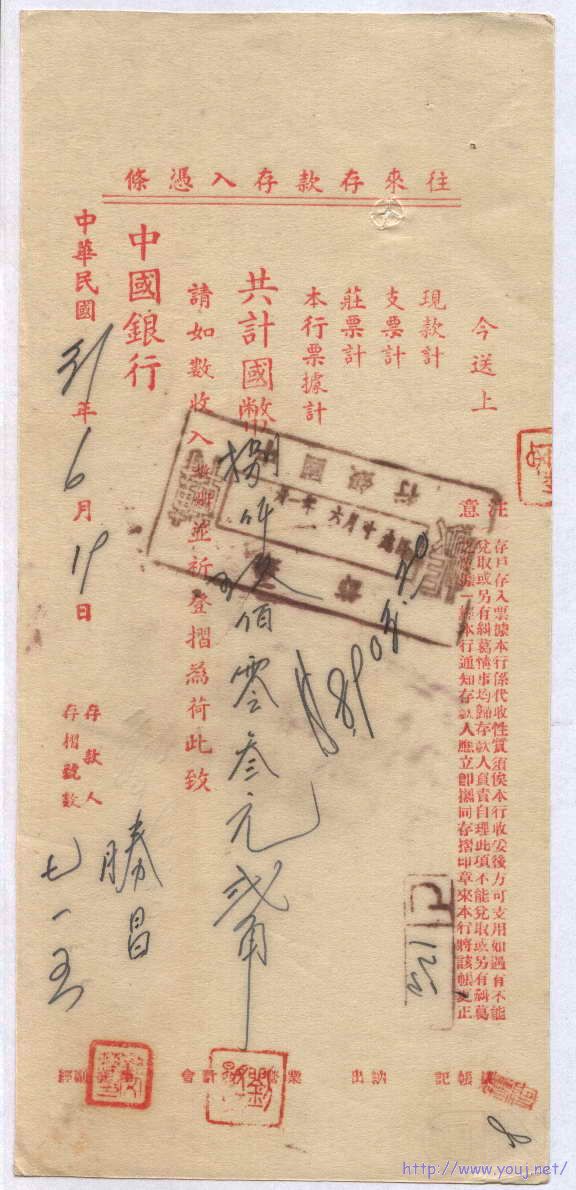 往來存款存入憑條
今送上
現款計
支票計
莊票計
本行票據計
共計國幣捌仟玖佰零叁元貳角
請如數收入並祈登摺為荷此致
中國銀行
中華民國31年6月19日
存款人
勝昌
存摺號數
七一五
注意
存戶存入票據本行係代收性質須俟本行收妥後方可支用如遇有不能
兌取或另有糾葛情事均歸存款人負責自理此項不能兌取或另有糾葛
本行通知存款人應立即攜同存摺印章來本行將該帳更正
國銀行
記帳
出納
營業
會計
http://www.youj.net/